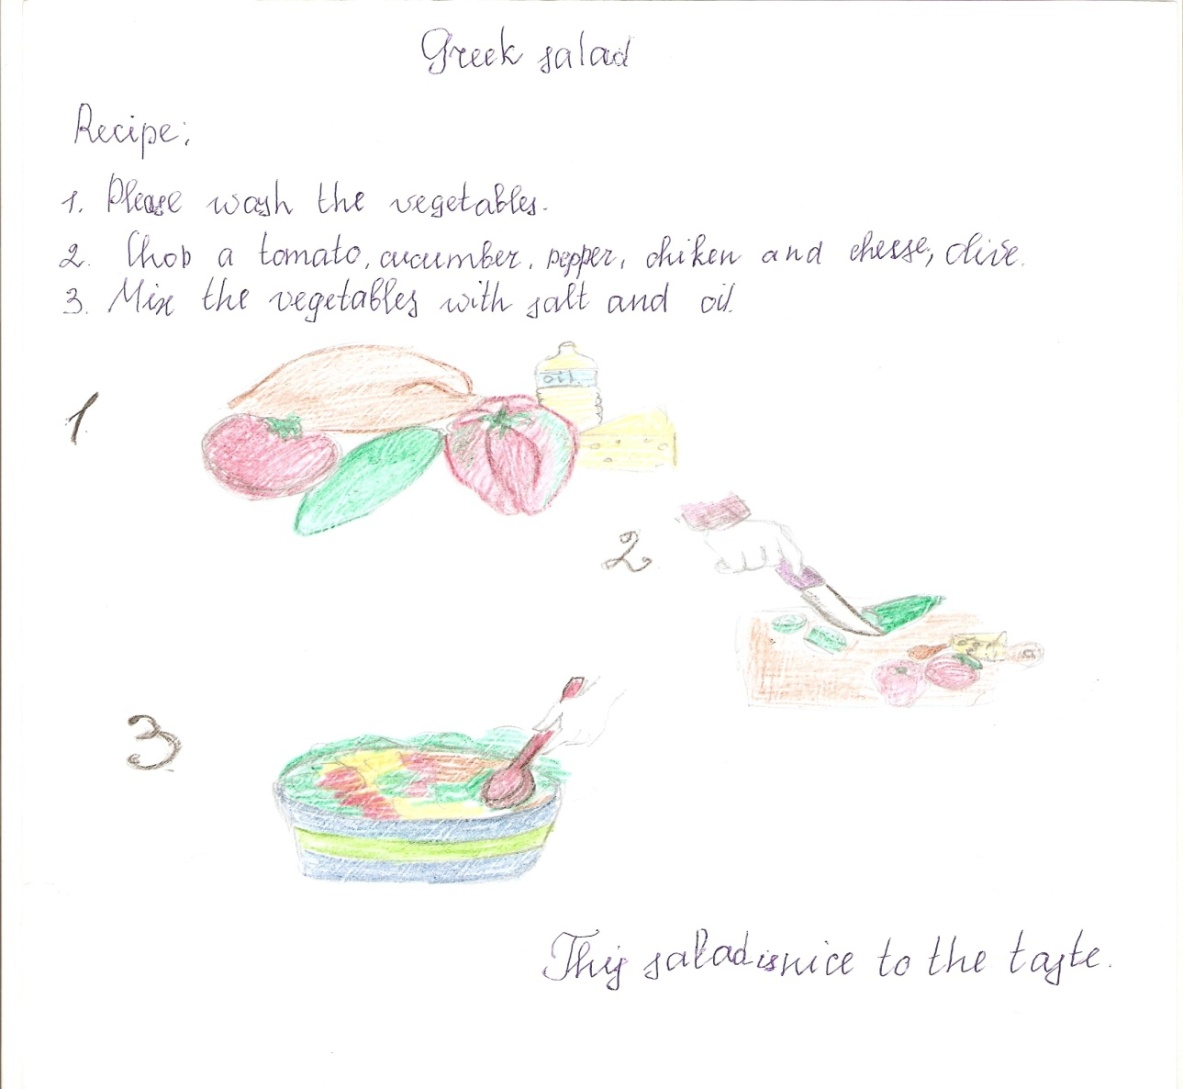 Greek salad
Recipe:
1. Please wash the vegetables.
2. Chop a tomato, cucumber, pepper, chiken and cheese, olive.
3. Mix the vegetables with salt and oil.
1
oil
2
3
This salad is nice to the taste.